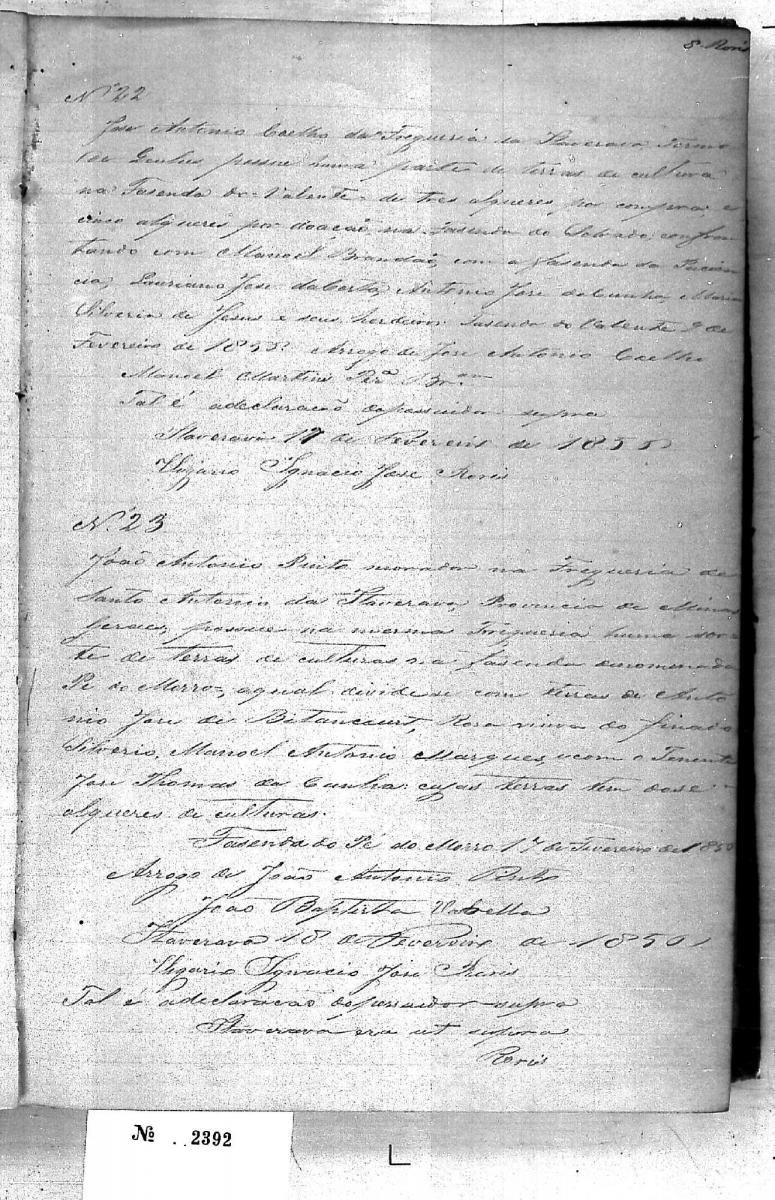 8 Roris
Nº 22
Jose Antonio Coelho da Fregueria da Itaverava Termo
de Queluz, possue huma parte de terras de cultura
na Fasenda do Valente de tres alqueres por compra, e
cinco alqueres por doação, na Fasenda do Salvado, confron
tando com Manoel Brandaõ, com a fasenda da
Lauriano Jose da Costa, Antonio Jose da Cunha, Maria
Silveria de Jesus e seus herdeiros. Fasenda do Valente 9 de
Fevereiro de 1855. Arrogo de Jose Antonio Coelho
Manoel Martins Perª
Tal é adeclaração dopossuidor supra
Itaverava 17 de Fevereiro de 1855
Vigario Ignacio Jose Roris
Nº 23
João Antonio Pinto morador na Fregueria de
Santo Antonio da Itaverava, Provincia de Minas
Geraes, possue na mesma Fregueria huma sor
te de terras de culturas na fasenda denomenada
Pé do Morro, aqual divide se com terras de Anto
nio Jose de Bitancourt, Rosa viuva do finado
Silverio, Manoel Antonio Marques, ecom o Tenente
Jose Thomas da Cunha: cujas terras tem dose
alqueres de culturas.
Fasenda do Pé do Morro 17 de Fevereiro de 185
Arrogo de João Antonio Pinto
João Baptista
Itaverava 18 de Fevereiro de 185
Vigario Ignacio Jose Roris
Tal é adeclaracão dopossuidor supra
Itaverava era ut supra
Roris
Nº 2392